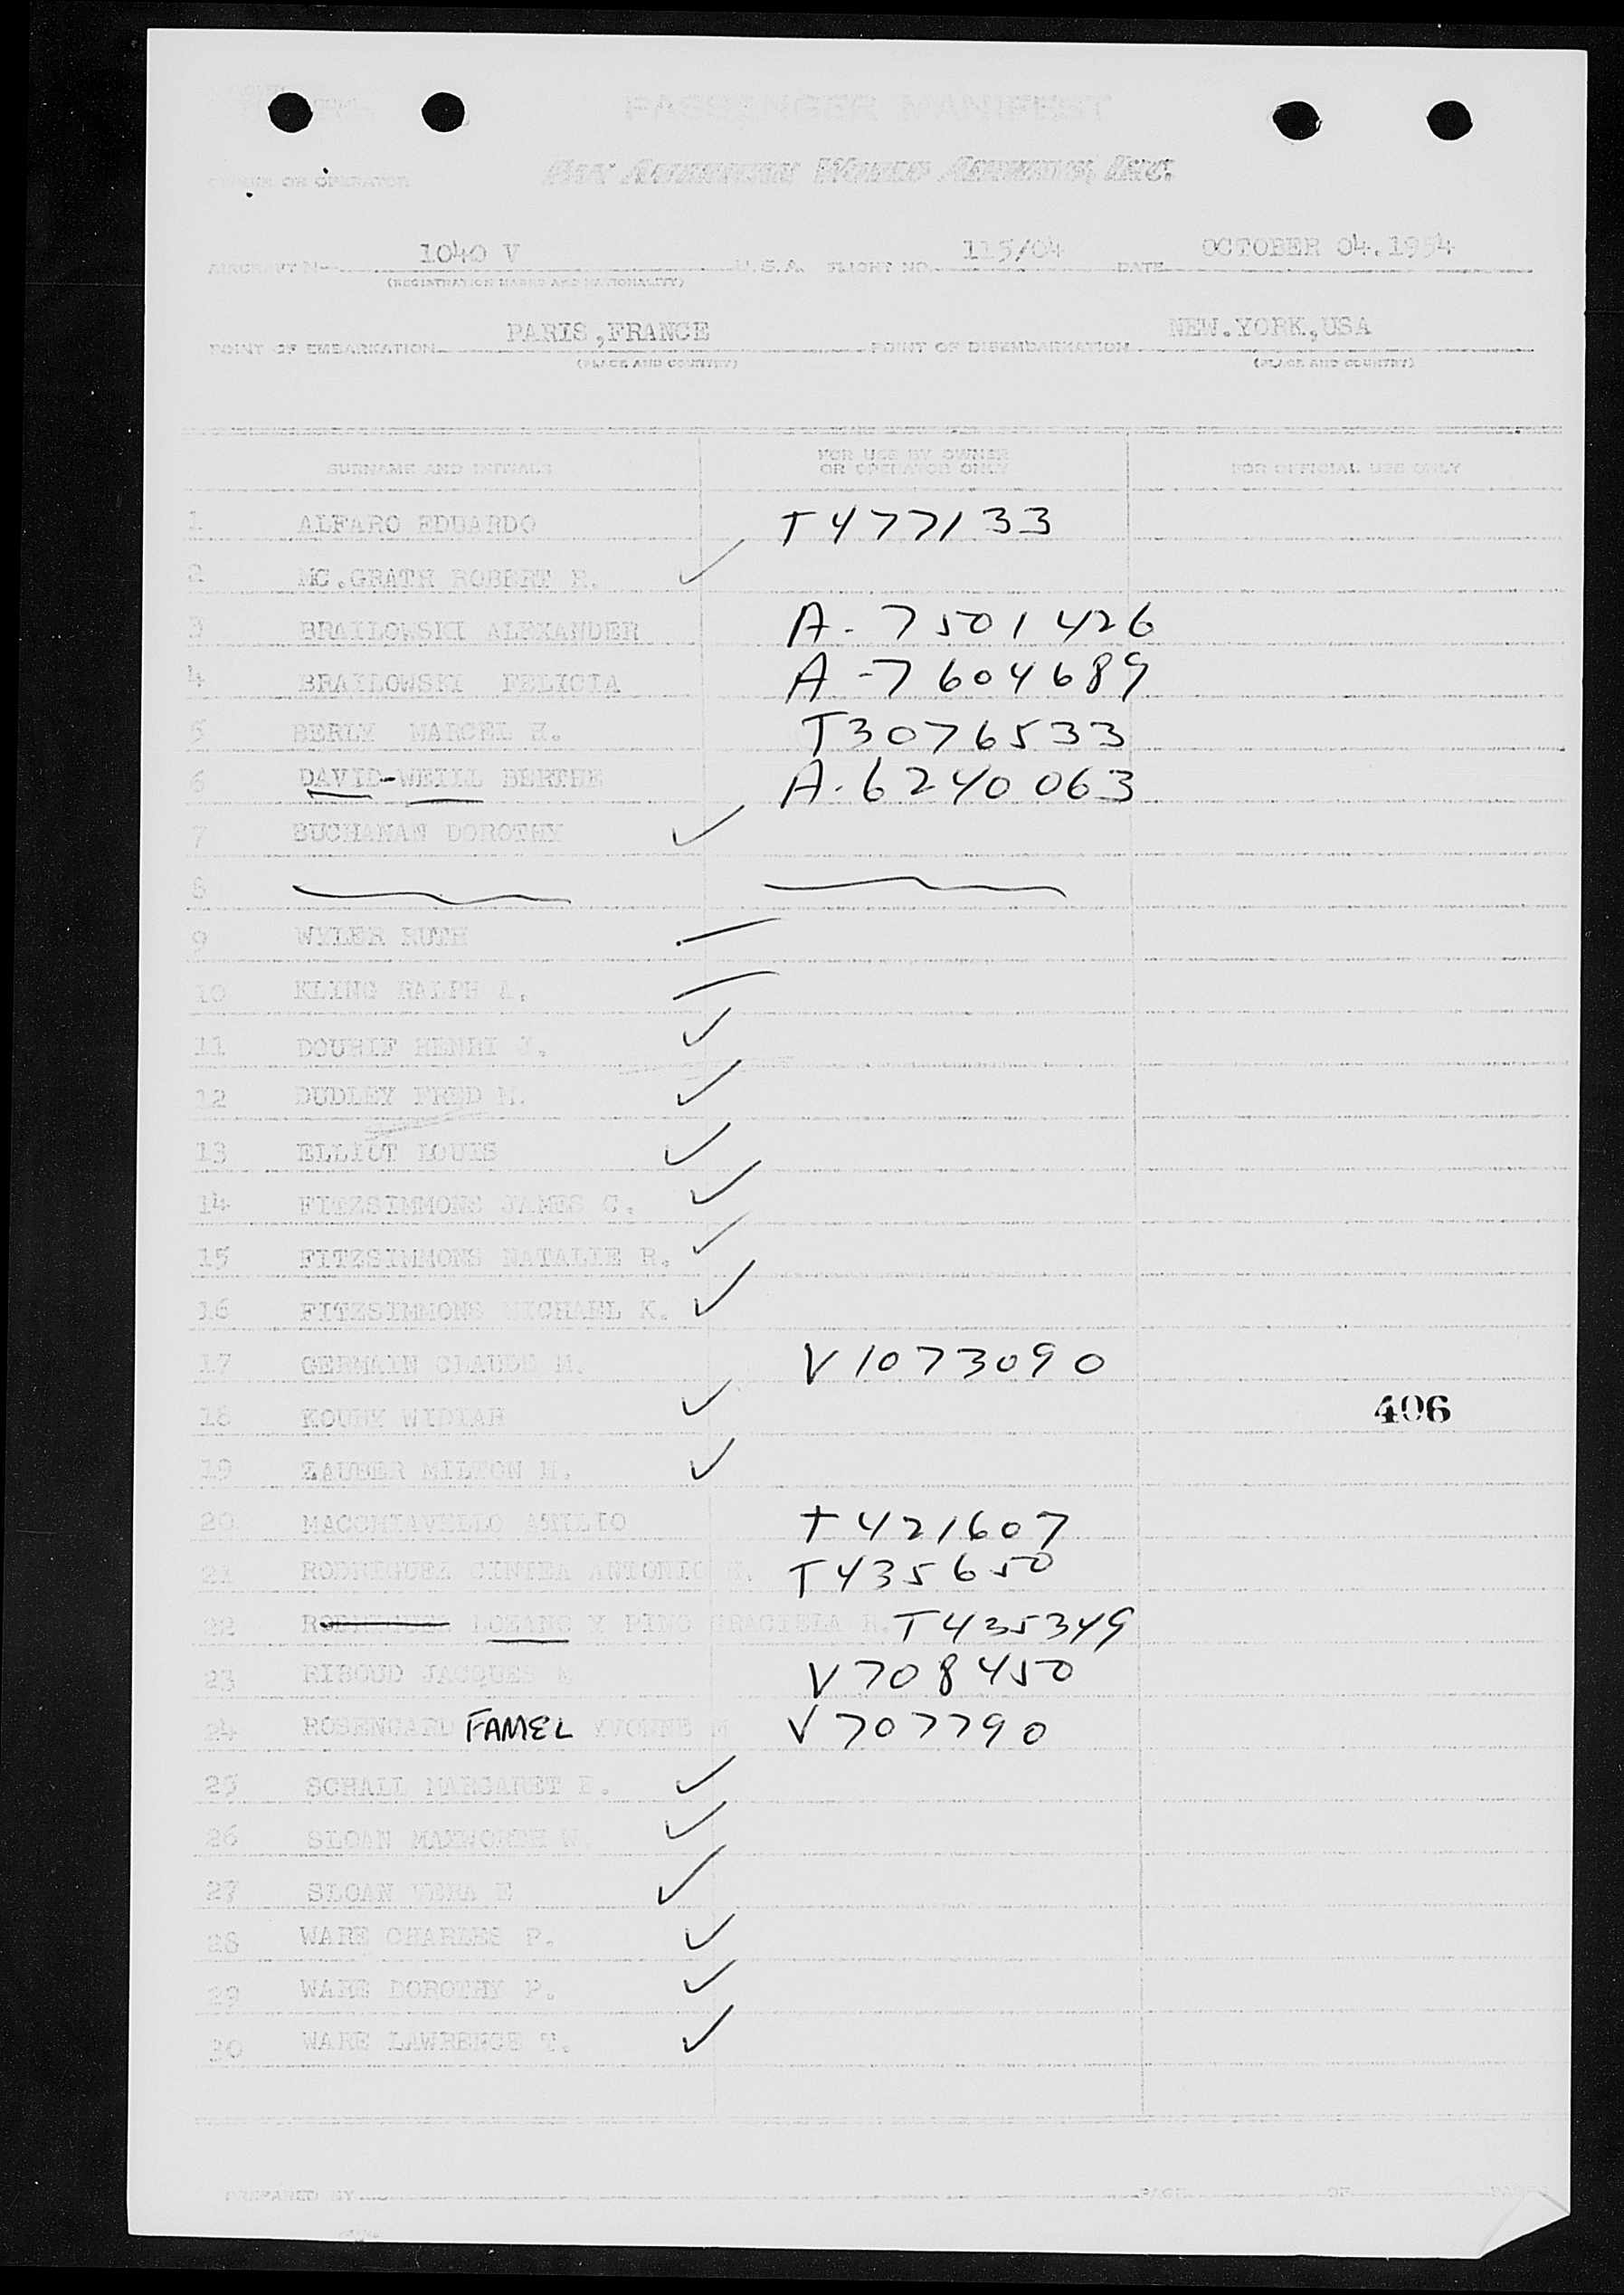 PASSENGER MANIFEST
OWNER OR OPERATOR PAN AMERICAN WORLD AIRWAYS, INC.
AIRCRAFT N- 1040 V U.S.A. FLIGHT NO. 115/04 DATE OCTOBER 04.1954
(REGISTRATION MARKS AND NATIONALITY)
POINT OF EMBARKATION PARIS,FRANCE POINT OF DISEMBARKATION NEW.YORK,USA
(PLACE AND COUNTRY) (PLACE AND COUNTRY)
SURNAME AND INITIALS FOR USE BY OWNER OR OPERATOR ONLY FOR OFFICIAL USE ONLY
1 ALFARO EDUARDO T477133
2 MC.GRATH ROBERT E. ✓
3 BRAILOWSKI ALEXANDER A-7501426
4 BRAILOWSKI FELICIA A-7604689
5 BERLY MARCEL H. T3076533
6 DAVID-WEILL BERTHE A-6240063
7 BUCHANAN DOROTHY ✓
8
9 WYLER RUTH
10 KLING RALPH A.
11 DOUHIF HENRI J. ✓
12 DUDLEY FRED H. ✓
13 ELLIOT LOUIS ✓
14 FITZSIMMONS JAMES C. ✓
15 FITZSIMMONS NATALIE R. ✓
16 FITZSIMMONS MICHAEL K. ✓
17 GERMAIN CLAUDE M. V1073090
18 KOURY WIDIAH ✓ 406
19 ZAUBER MILTON H. ✓
20 MACCHIAVELLO T421607
21 RODRIGUEZ CINTRA ANTONIO T435650
22 RODRIGUEZ LOZANO Y PINO GRACIELA R. T435349
23 RIBOUD JACQUES V708450
24 ROSENGARD FAMEL YVONNE M V707790
25 SCHALL MARGARET E. ✓
26 SLOAN MAXWORTH W. ✓
27 SLOAN VERA E ✓
28 WARE CHARLES P. ✓
29 WARE DOROTHY P. ✓
30 WARE LAWRENCE T. ✓
PREPARED BY PAGE OF PAGES